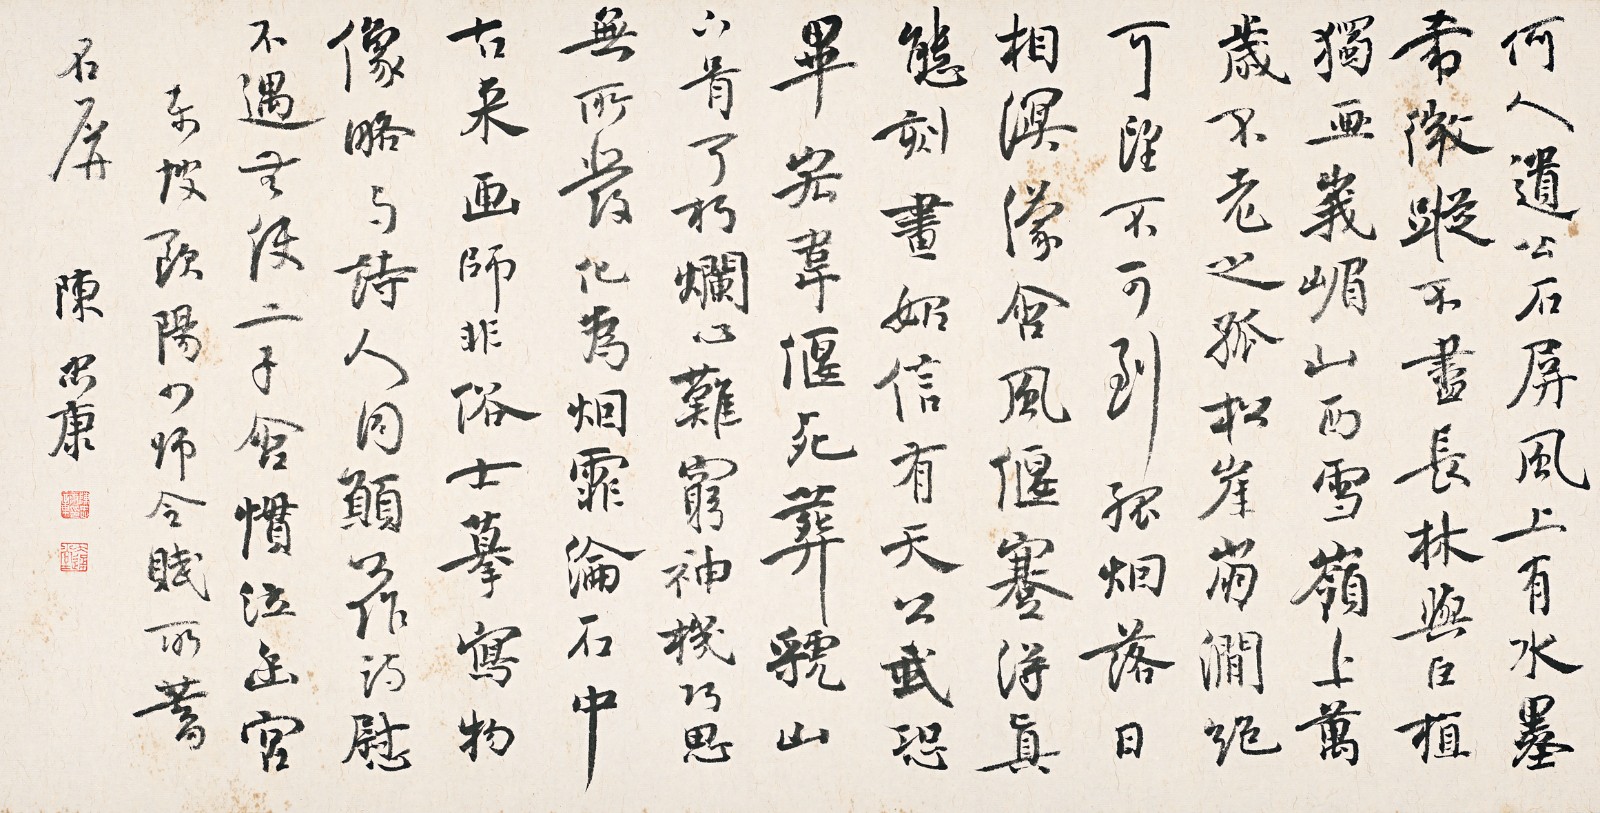 何人遺公石屏風上有水墨
希微蹤不畫長林與巨植
獨畫峩嵋山西雪嶺上萬
歲不老之孤松崖崩澗絕
可望不可到孤烟落日
相溟濛含風偃蹇得真
態刻畫始信有天公我恐
畢宏韋偃死葬虢山
下骨可朽爛心難窮神機巧思
無所發化為烟霏淪石中
古来画師非俗士摹寫物
像略与詩人同願公作詩慰
不遇無使二子含憤泣幽宮
東坡歐陽少師令賦所蓄
石屏 陳思康